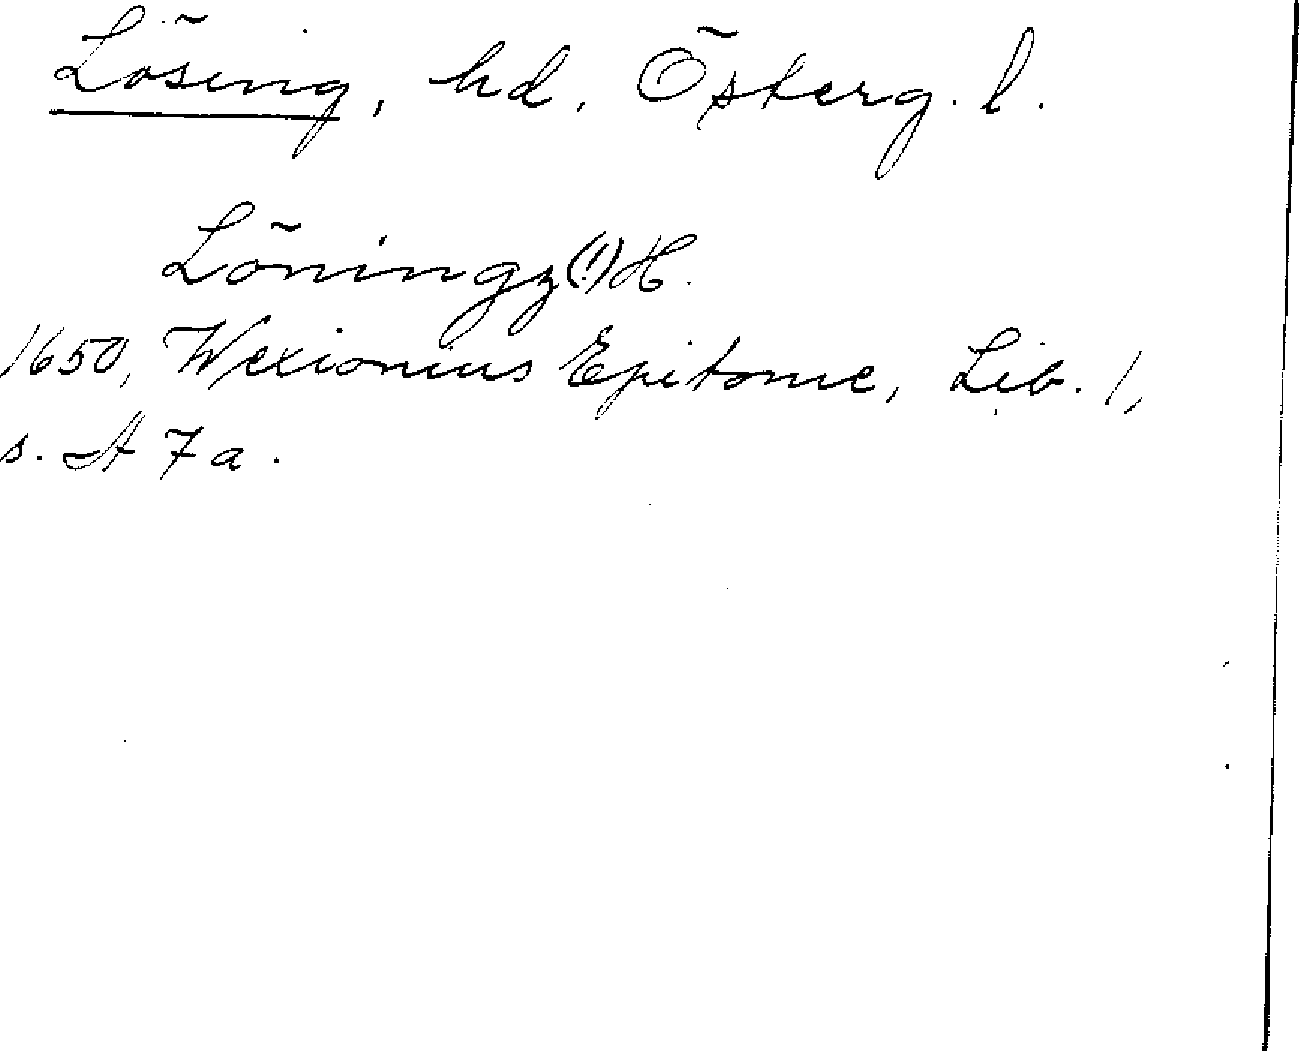 Lösing, hd. Österg. l.
Löningz (!) H.
1650, Wexionius Epitome, Lib. 1,
s. A 7 a.